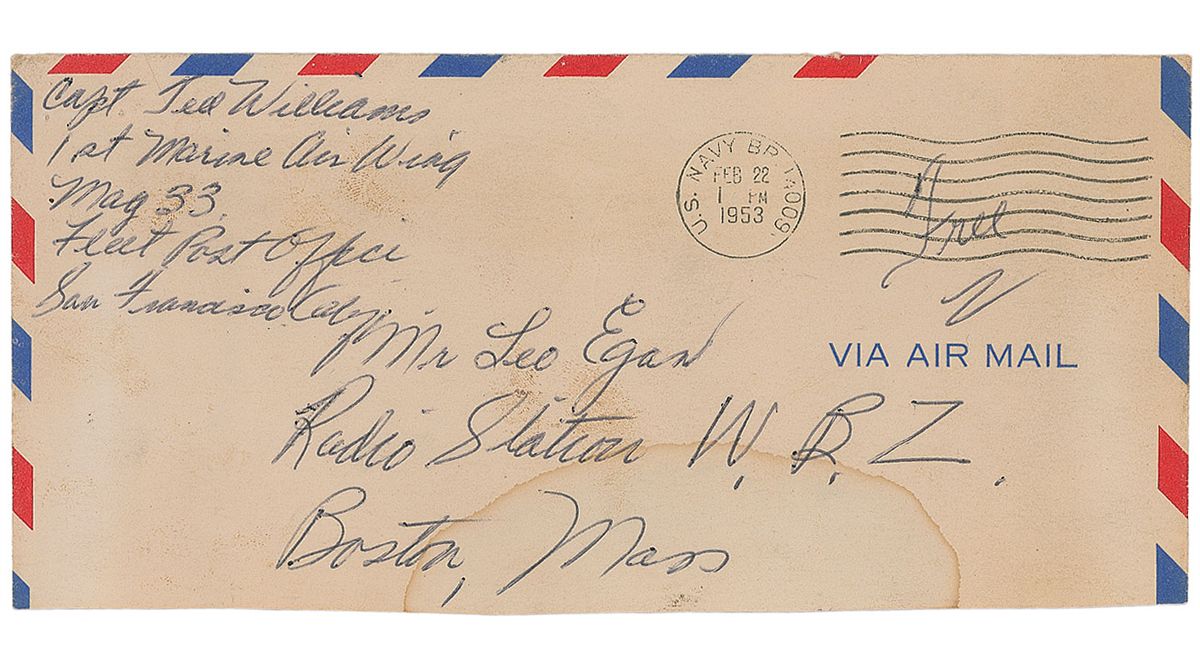 Capt Ted Williams
1st Marine Air Wing
Mag 33
Fleet Post Office
San Francisco
U.S. NAVY BR. 14009
FEB 22
1 PM
1953
Free
VIA AIR MAIL
Mr Leo Egan
Radio Station W, B, Z.
Boston, Mass